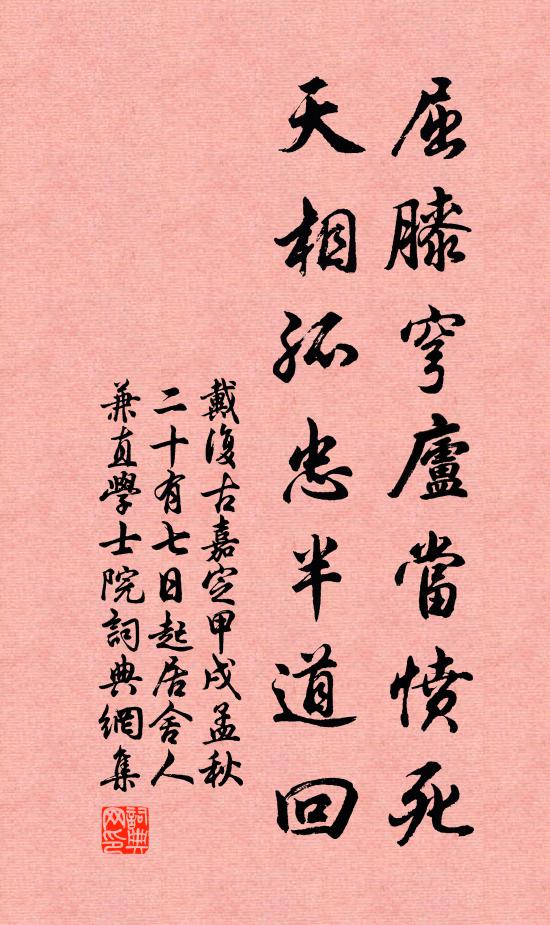 屈膝穹廬當憤死
天相孤忠半道回
戴復古嘉定甲戌孟秋
二十有七日起居舍人
兼直學士院詞典網集
詞典
网印